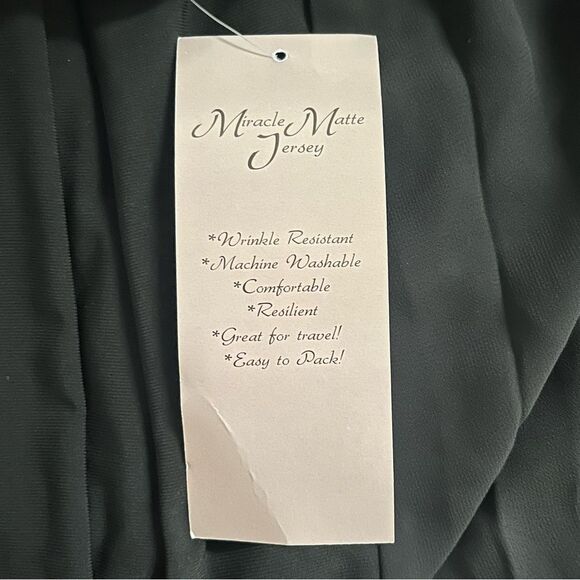 Miracle Matte
Jersey
*Wrinkle Resistant
*Machine Washable
*Comfortable
*Resilient
*Great for travel!
*Easy to Pack!